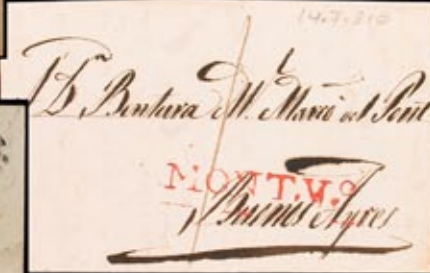 14.7.810
Bentura Ml. Marcó del Pont
MONT.V.º
Buenos Ayres